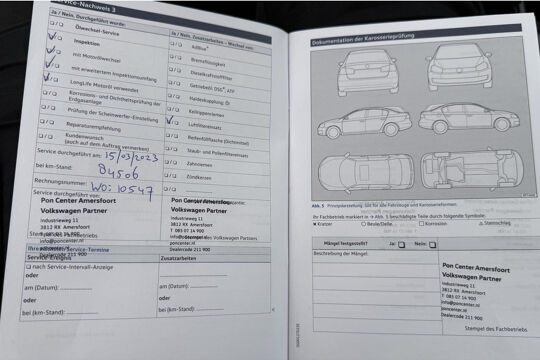 Service-Nachweis 3
Ja / Nein, Durchgeführt wurde:
Ölwechsel-Service
Inspektion
mit Motorölwechsel
mit erweitertem Inspektionsumfang
LongLife Motoröl verwendet
Korrosions- und Dichtheitsprüfung der
Erdgasanlage
Prüfung der Scheinwerfer-Einstellung
Reparaturempfehlung
Kundenwunsch
(auch auf dem Auftrag vermerken)
Service durchgeführt am: 15/03/2023
bei km-Stand: 84506
Rechnungsnummer: WO: 10547
Service durchgeführt von:
Pon Center Amersfoort
Volkswagen Partner
Industrieweg 11
3812 RX Amersfoort
T 085 07 14 900
poncenter.nl
Dealercode 211 900
Service-Termine
Service-Ereignis
nach Service-Intervall-Anzeige
oder
am (Datum):
oder
bei (km-Stand):
Ja / Nein, Zusatzarbeiten - Wechsel von:
AdBlue®
Bremsflüssigkeit
Dieselkraftstofffilter
Getriebeöl DSG®, ATF
Haldexkupplung: Öl
Keilrippenriemen
Luftfiltereinsatz
Reifenfüllflasche (Dichtmittel)
Staub- und Pollenfiltereinsatz
Zahnriemen
Zündkerzen
Pon Center Amersfoort
Volkswagen Partner
Industrieweg 11
3812 RX Amersfoort
T 085 07 14 900
poncenter.nl
Stempel des Volkswagen Partners
Dealercode 211 900
Zusatzarbeiten
am (Datum):
oder
bei (km-Stand):
Dokumentation der Karosserieprüfung
Abb. 5 Prinzipdarstellung: Gilt für alle Fahrzeuge und Karosserieformen.
Ihr Fachbetrieb markiert in → Abb. 5 beschädigte Teile durch folgende Symbole:
Kratzer Beule/Delle Korrosion Steinschlag
Mängel festgestellt? Ja Nein
Beschreibung der Mängel:
Pon Center Amersfoort
Volkswagen Partner
Industrieweg 11
3812 RX Amersfoort
T 085 07 14 900
poncenter.nl
Dealercode 211 900
Stempel des Fachbetriebs